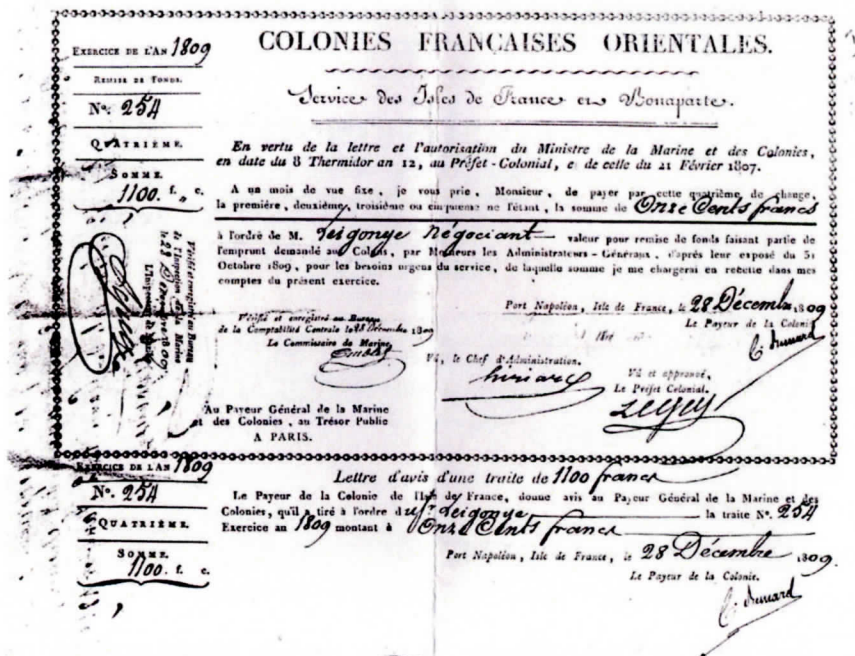 EXERCICE DE L'AN 1809
REMISE DE FONDS.
N°. 254
QUATRIÈME.
SOMME.
1100. f. „ c.
COLONIES FRANÇAISES ORIENTALES.
Service des Isles de France et Bonaparte.
En vertu de la lettre et l'autorisation du Ministre de la Marine et des Colonies,
en date du 8 Thermidor an 12, au Préfet-Colonial, e de celle du 21 Février 1807.
A un mois de vue fixe, je vous prie, Monsieur, de payer par cette quatrième de change,
la première, deuxième, troisième ou cinquieme ne l'étant, la somme de Onze Cents francs
à l'ordre de M. Leigonye Négociant valeur pour remise de fonds faisant partie de
l'emprunt demandé au Colons, par Messieurs les Administrateurs-Généraux, d'après leur exposé du 31
Octobre 1809, pour les besoins urgens du service, de laquelle somme je me chargerai en recette dans mes
comptes du présent exercice.
Port Napoléon, Isle de France, le 28 Décembre 1809
Le Payeur de la Colonie
Vérifié et enregistré au Bureau
de la Comptabilité Centrale le 28 Décembre 1809
Le Commissaire de Marine
Vu, le Chef d'Administration.
Vû et approuvé,
Le Préfet Colonial.
Vérifié et enregistré au Bureau
de l'Inspection de la Marine
le 28 Décembre 1809
L'Inspecteur de Marine
Au Payeur Général de la Marine
et des Colonies, au Trésor Public
A PARIS.
EXERCICE DE L'AN 1809
N°. 254
QUATRIÈME.
SOMME.
1100. f. c.
Lettre d'avis d'une traite de 1100 francs
Le Payeur de la Colonie de l'Isle de France, donne avis au Payeur Général de la Marine et des
Colonies, qu'il a tiré à l'ordre de Leigonye la traite N°. 254
Exercice an 1809 montant à Onze Cents francs
Port Napoléon, Isle de France, le 28 Décembre 1809.
Le Payeur de la Colonie.